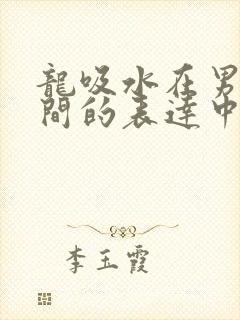 龍吸水在男
間的表達中
李玉霞